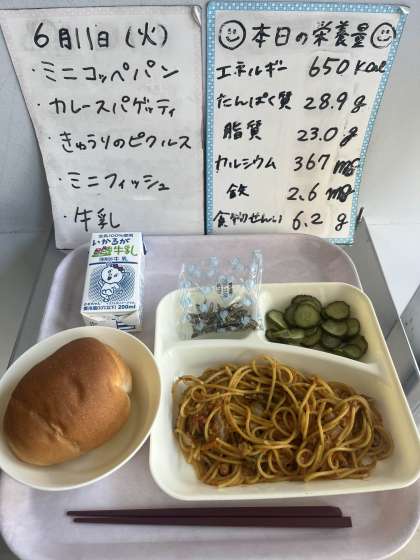 6月11日(火)
・ミニコッペパン
・カレースパゲッティ
・きゅうりのピクルス
・ミニフィッシュ
・牛乳
本日の栄養量
エネルギー 650 kcal
たんぱく質 28.9 g
脂質 23.0 g
カルシウム 367 mg
鉄 2.6 mg
食物せんい 6.2 g
生乳100%使用
いかるが
牛乳
200ml